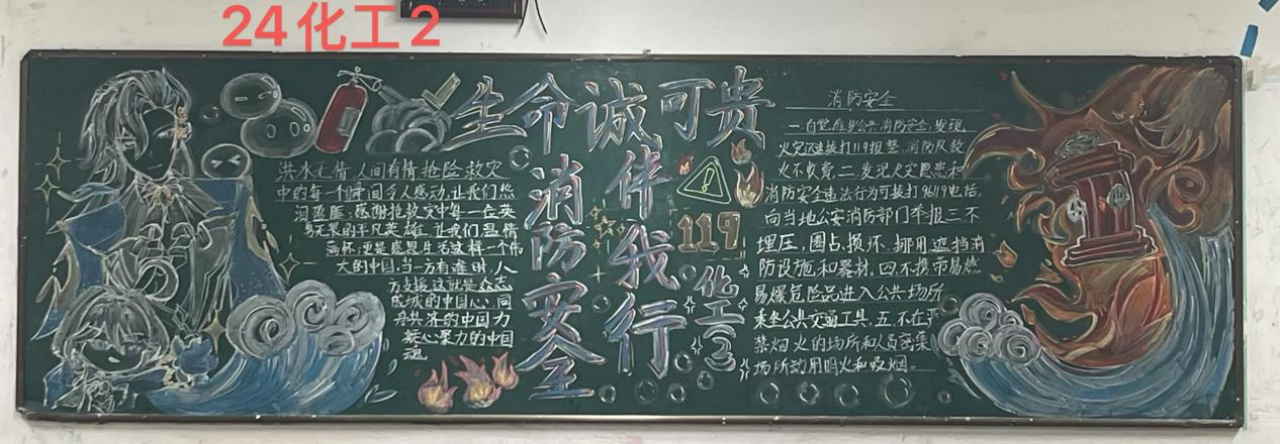 24化工2
生命诚可贵
消防安全
伴我行
119
化工③
洪水无情,人间有情抢险救灾
中的每一个瞬间令人感动,让我们热
泪盈眶.感谢抢救灾中每一位英
勇无畏的平凡英雄.让我们温情
满怀,更是感恩生活这样一个伟
大的中国,当一方有难时,八
方支援,这就是众志
成城的中国心,同
舟共济的中国力
凝心聚力的中国
魂
消防安全
一.自觉维护公共消防安全,发现
火灾迅速拨打119报警,消防队救
火不收费.二.发现火灾隐患和
消防安全违法行为可拨打96119电话,
向当地公安消防部门举报三不
埋压,圈占,损坏,挪用,遮挡消
防设施和器材,四.不携带易燃
易爆危险品进入公共场所
乘坐公共交通工具,五.不在严
禁烟火的场所和人员密集
场所动用明火和吸烟。